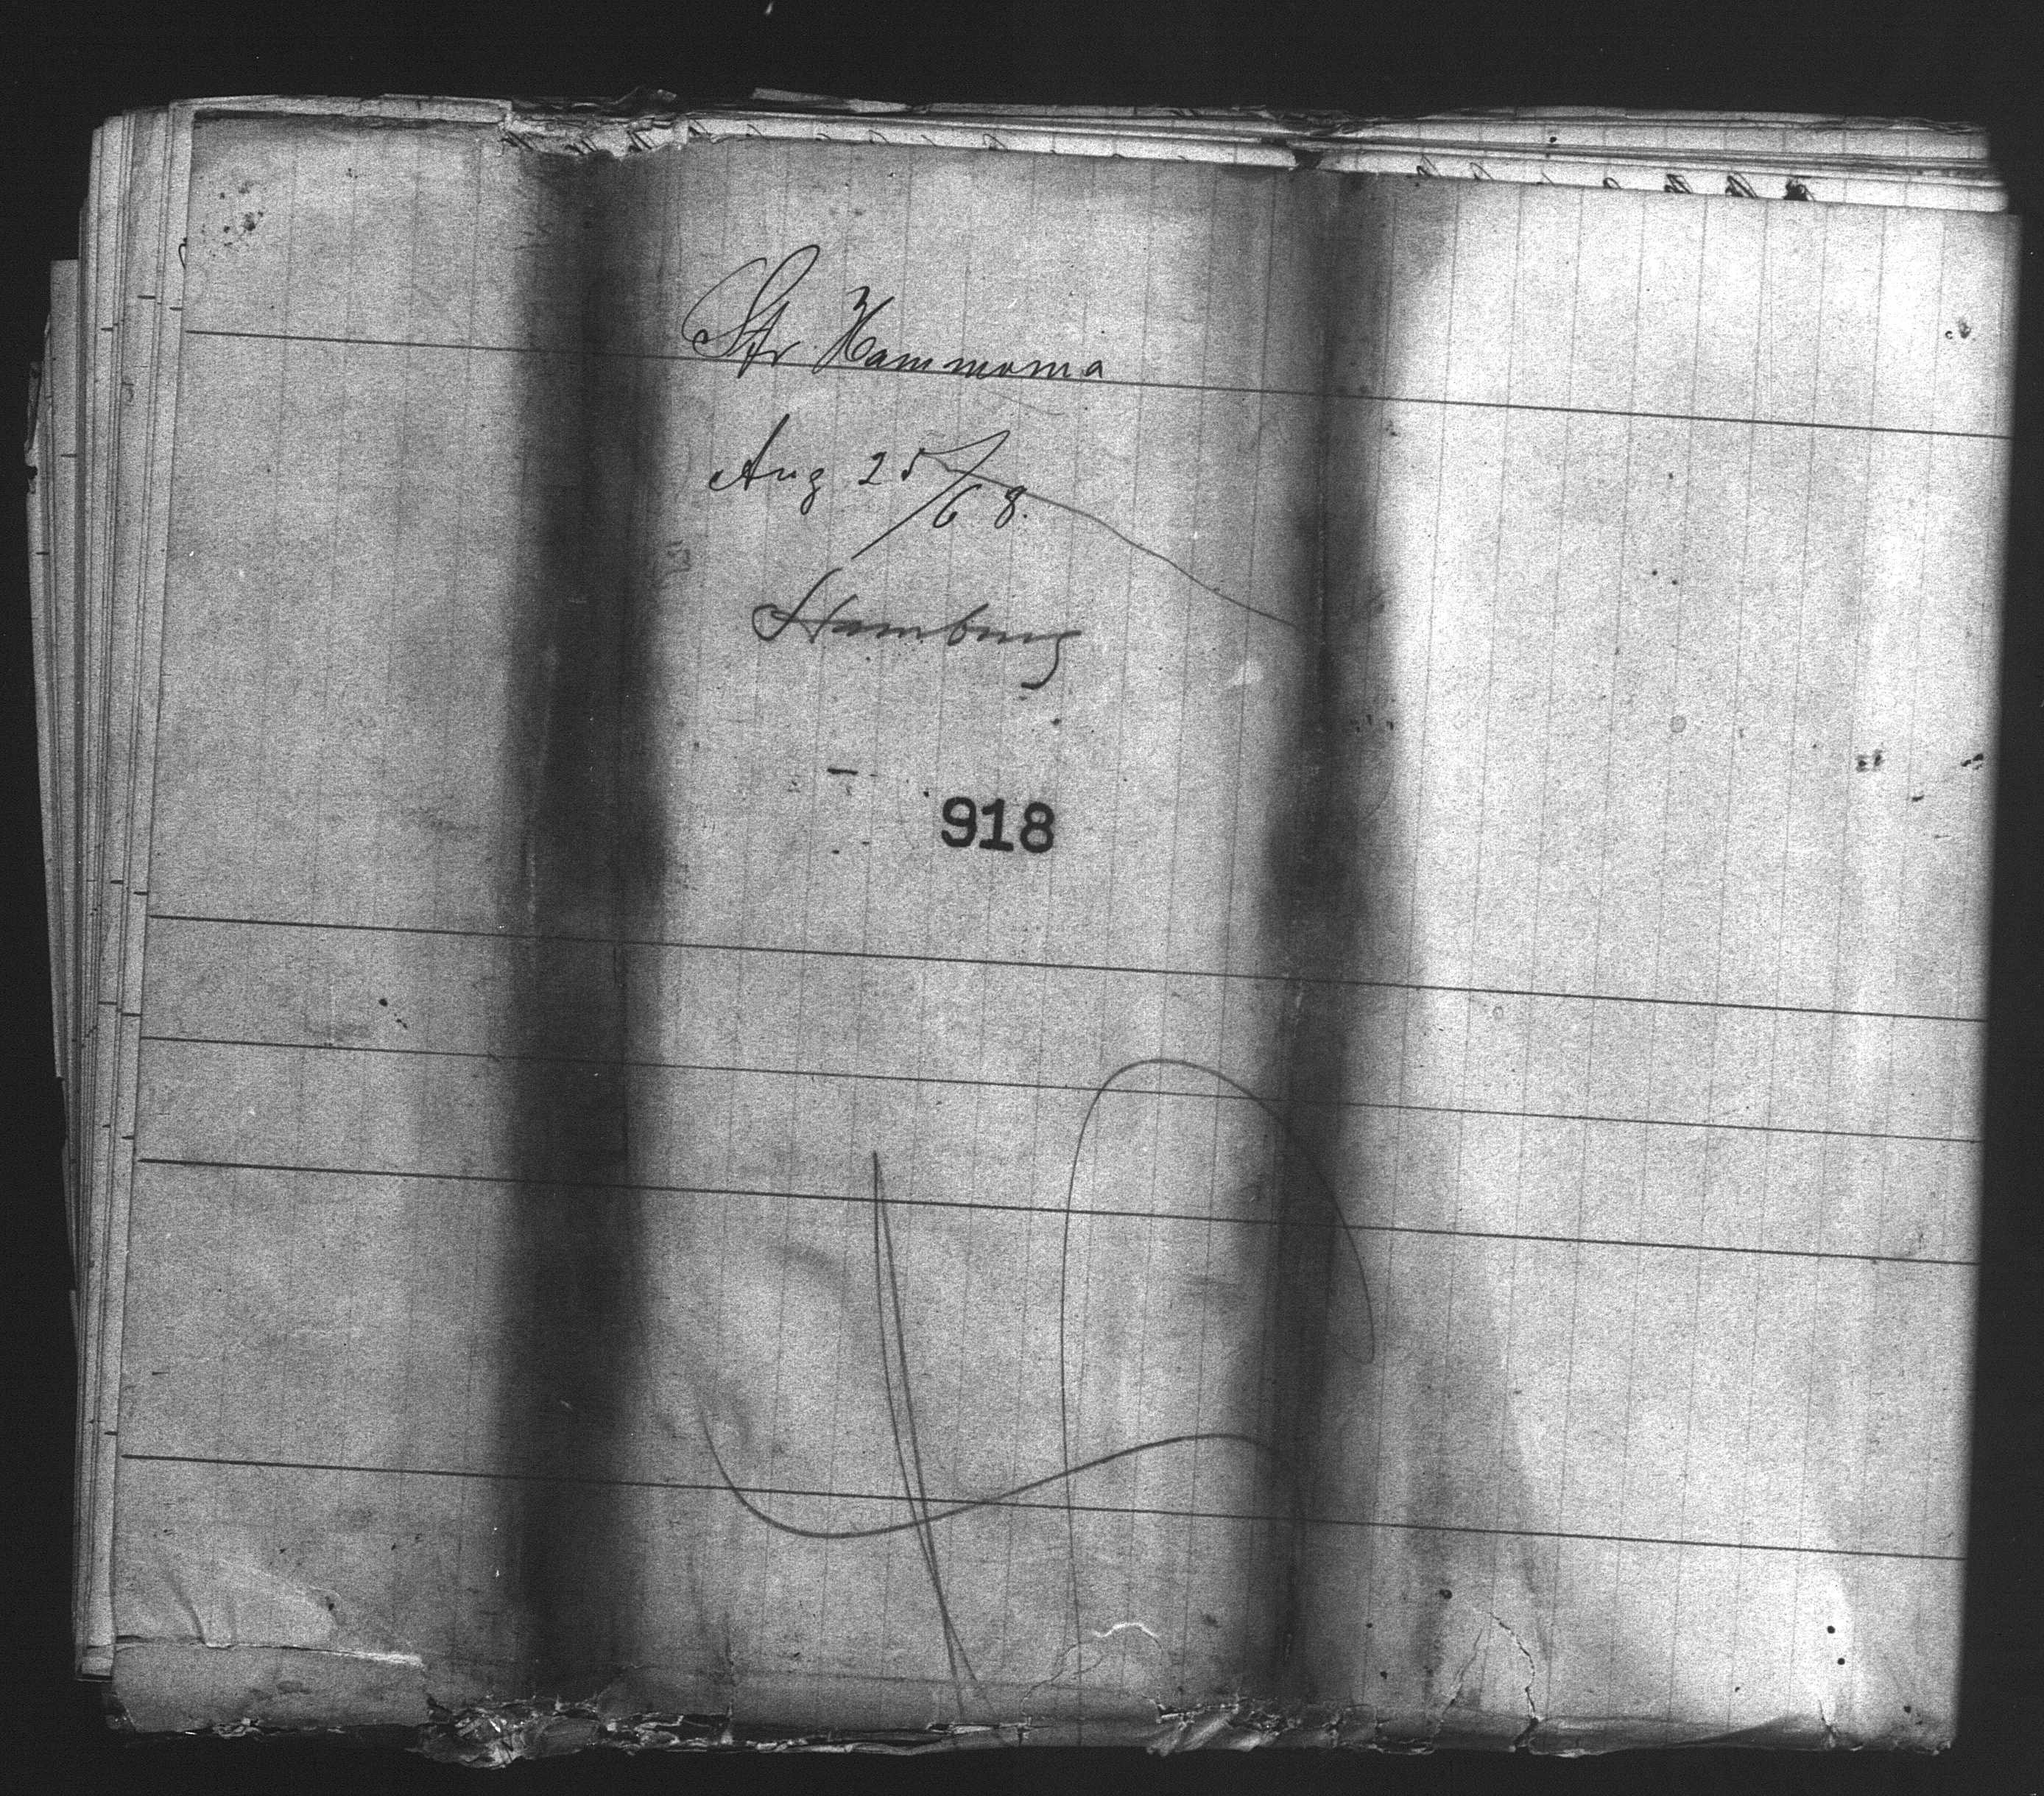 Str. Hammonia
Aug 25/68.
Hamburg
918